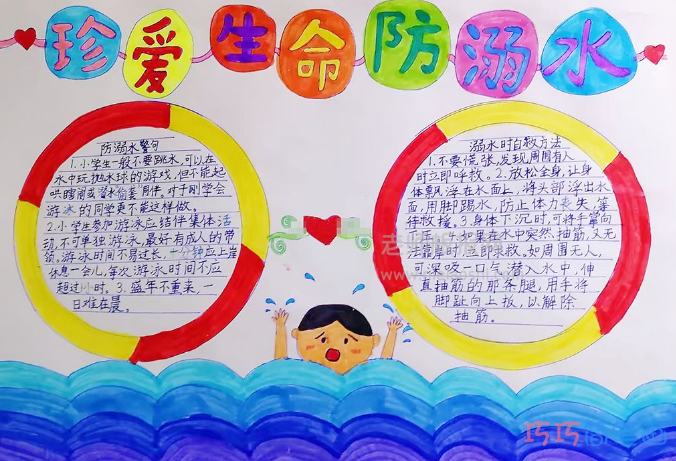 珍爱生命防溺水
防溺水警句
1.小学生一般不要跳水,可以在
水中玩抛水球的游戏,但不能起
哄瞎闹或潜水偷袭同伴,对于刚学会
游泳的同学更不能这样做。
2.小学生参加游泳应结伴集体活
动,不可单独游泳,最好有成人的带
领。游泳时间不易过长,一分钟应上岸
休息一会儿,每次游泳时间不应
超过小时。3.盛年不重来,一
日难在晨。
溺水时自救方法
1.不要慌张,发现周围有人
时立即呼救。2.放松全身,让身
体飘浮在水面上,将头部浮出水
面,用脚踢水,防止体力丧失,等
待救援。3.身体下沉时,可将手掌向
下压。4.如果在水中突然抽筋,又无
法靠岸时,立即求救。如周围无人,
可深吸一口气潜入水中,伸
直抽筋的那条腿,用手将
脚趾向上扳,以解除
抽筋。
巧巧